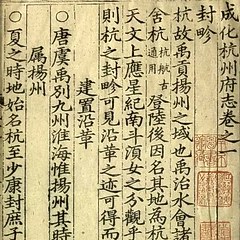 成化杭州府志卷之一
封畛
杭故禹貢揚州之域也禹治水會諸
舍杭杭航古通用登陸後因名其地為杭
天文上應星紀南斗湏女之分觀乎
則杭之封畛可見沿革之迹可得而
建置沿革
○唐虞禹别九州淮海惟揚州其時
属揚州
○夏之時地始名杭至少康封庶子